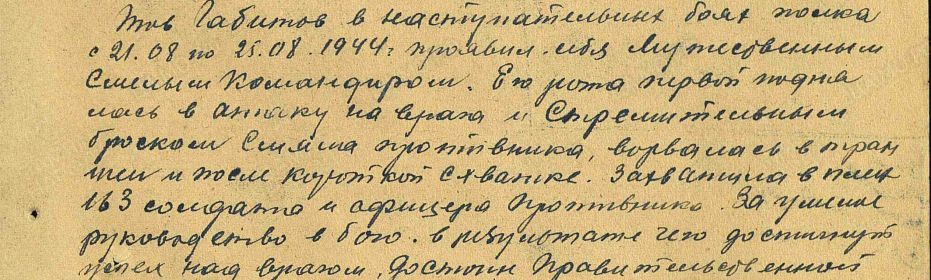 Тов Габитов в наступательных боях полка
с 21.08 по 25.08.1944г проявил себя Мужественным
Смелым Командиром. Его рота первой подня
лась в атаку на врага и Стремительным
броском Смяла противника, ворвалась в тран
шеи и после короткой схватке. Захватила в плен
163 солдата и офицера Противника. За умелое
руководство в бою. в результате чего достигнут
успех над врагом, Достоин Правительственной